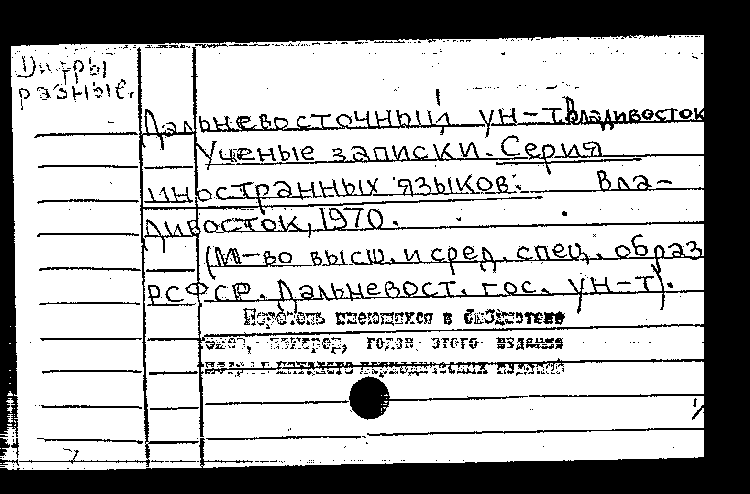 Шифры
разные.
Дальневосточный ун-т. Владивосток
Ученые записки. Серия
иностранных языков. Вла-
дивосток, 1970.
(М-во высш. и сред. спец. образ
РСФСР. Дальневост. гос. ун-т).
Перечень имеющихся в библиотеке
номеров, годов этого издания
периодических изданий